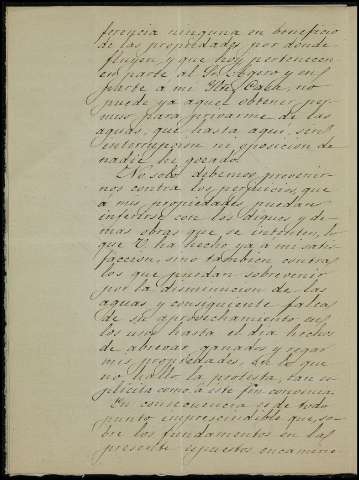 ferencia ninguna en beneficio
de las propiedades por donde
fluyen, y que hoy pertenecen
en parte al Sr. Agero y en
parte a mi Casa, no
puede ya aquel obtener per-
miso para privarme de las
aguas, que hasta aqui, sin
interrupcion ni oposicion de
nadie he gozado.
No solo debemos prevenir-
nos contra los perjuicios que
a mis propiedades puedan
inferirse con los diques y de-
mas obras que se intenten, lo
que V. ha hecho ya á mi satis-
faccion, sino tambien contra
los que puedan sobrevenir
por la disminucion de las
aguas y consiguiente falta
de su aprovechamiento en
los usos hasta el dia hechos
de abrevar ganados y regar
mis propiedades, en lo que
no hallo la protesta, tan es-
plicita como á este fin convenia.
En consecuencia es de todo
punto imprescindible que, so-
bre los fundamentos en las
presente espuestos encamine